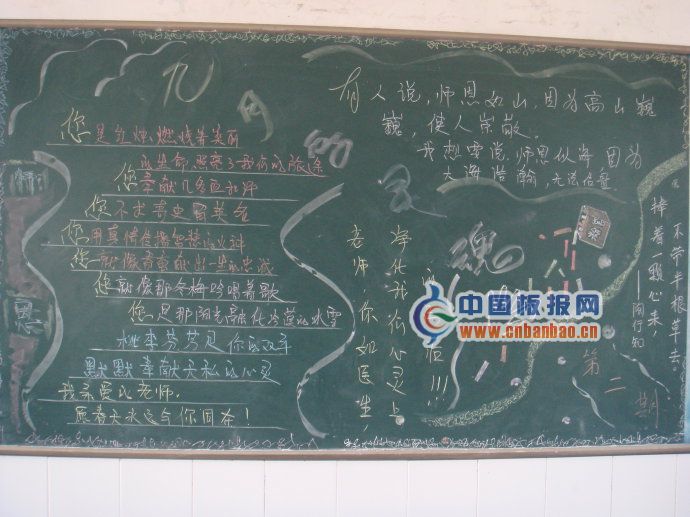 九月的灵魂
您是红烛燃烧着美丽
的生命，照亮了我们的旅途
您奉献几多
您不求青史留英名
您用真情传播智慧的火种
您就像春蚕献出一生的忠诚
您就像那冬梅吟唱着歌
您是那阳光融化冷漠的冰雪
桃李芬芳是你的
默默奉献无私的心灵
我亲爱的老师，
愿春天永远与你同在！
有人说，师恩如山，因为高山巍
巍，使人崇敬。
我想要说，师恩似海，因为
大海浩瀚，无法估量
老师，你如医生，
净化我们心灵上
!!!
捧着一颗心来
不带半根草去
——陶行知
第二期
师
恩
中国板报网
www.cnbanbao.cn